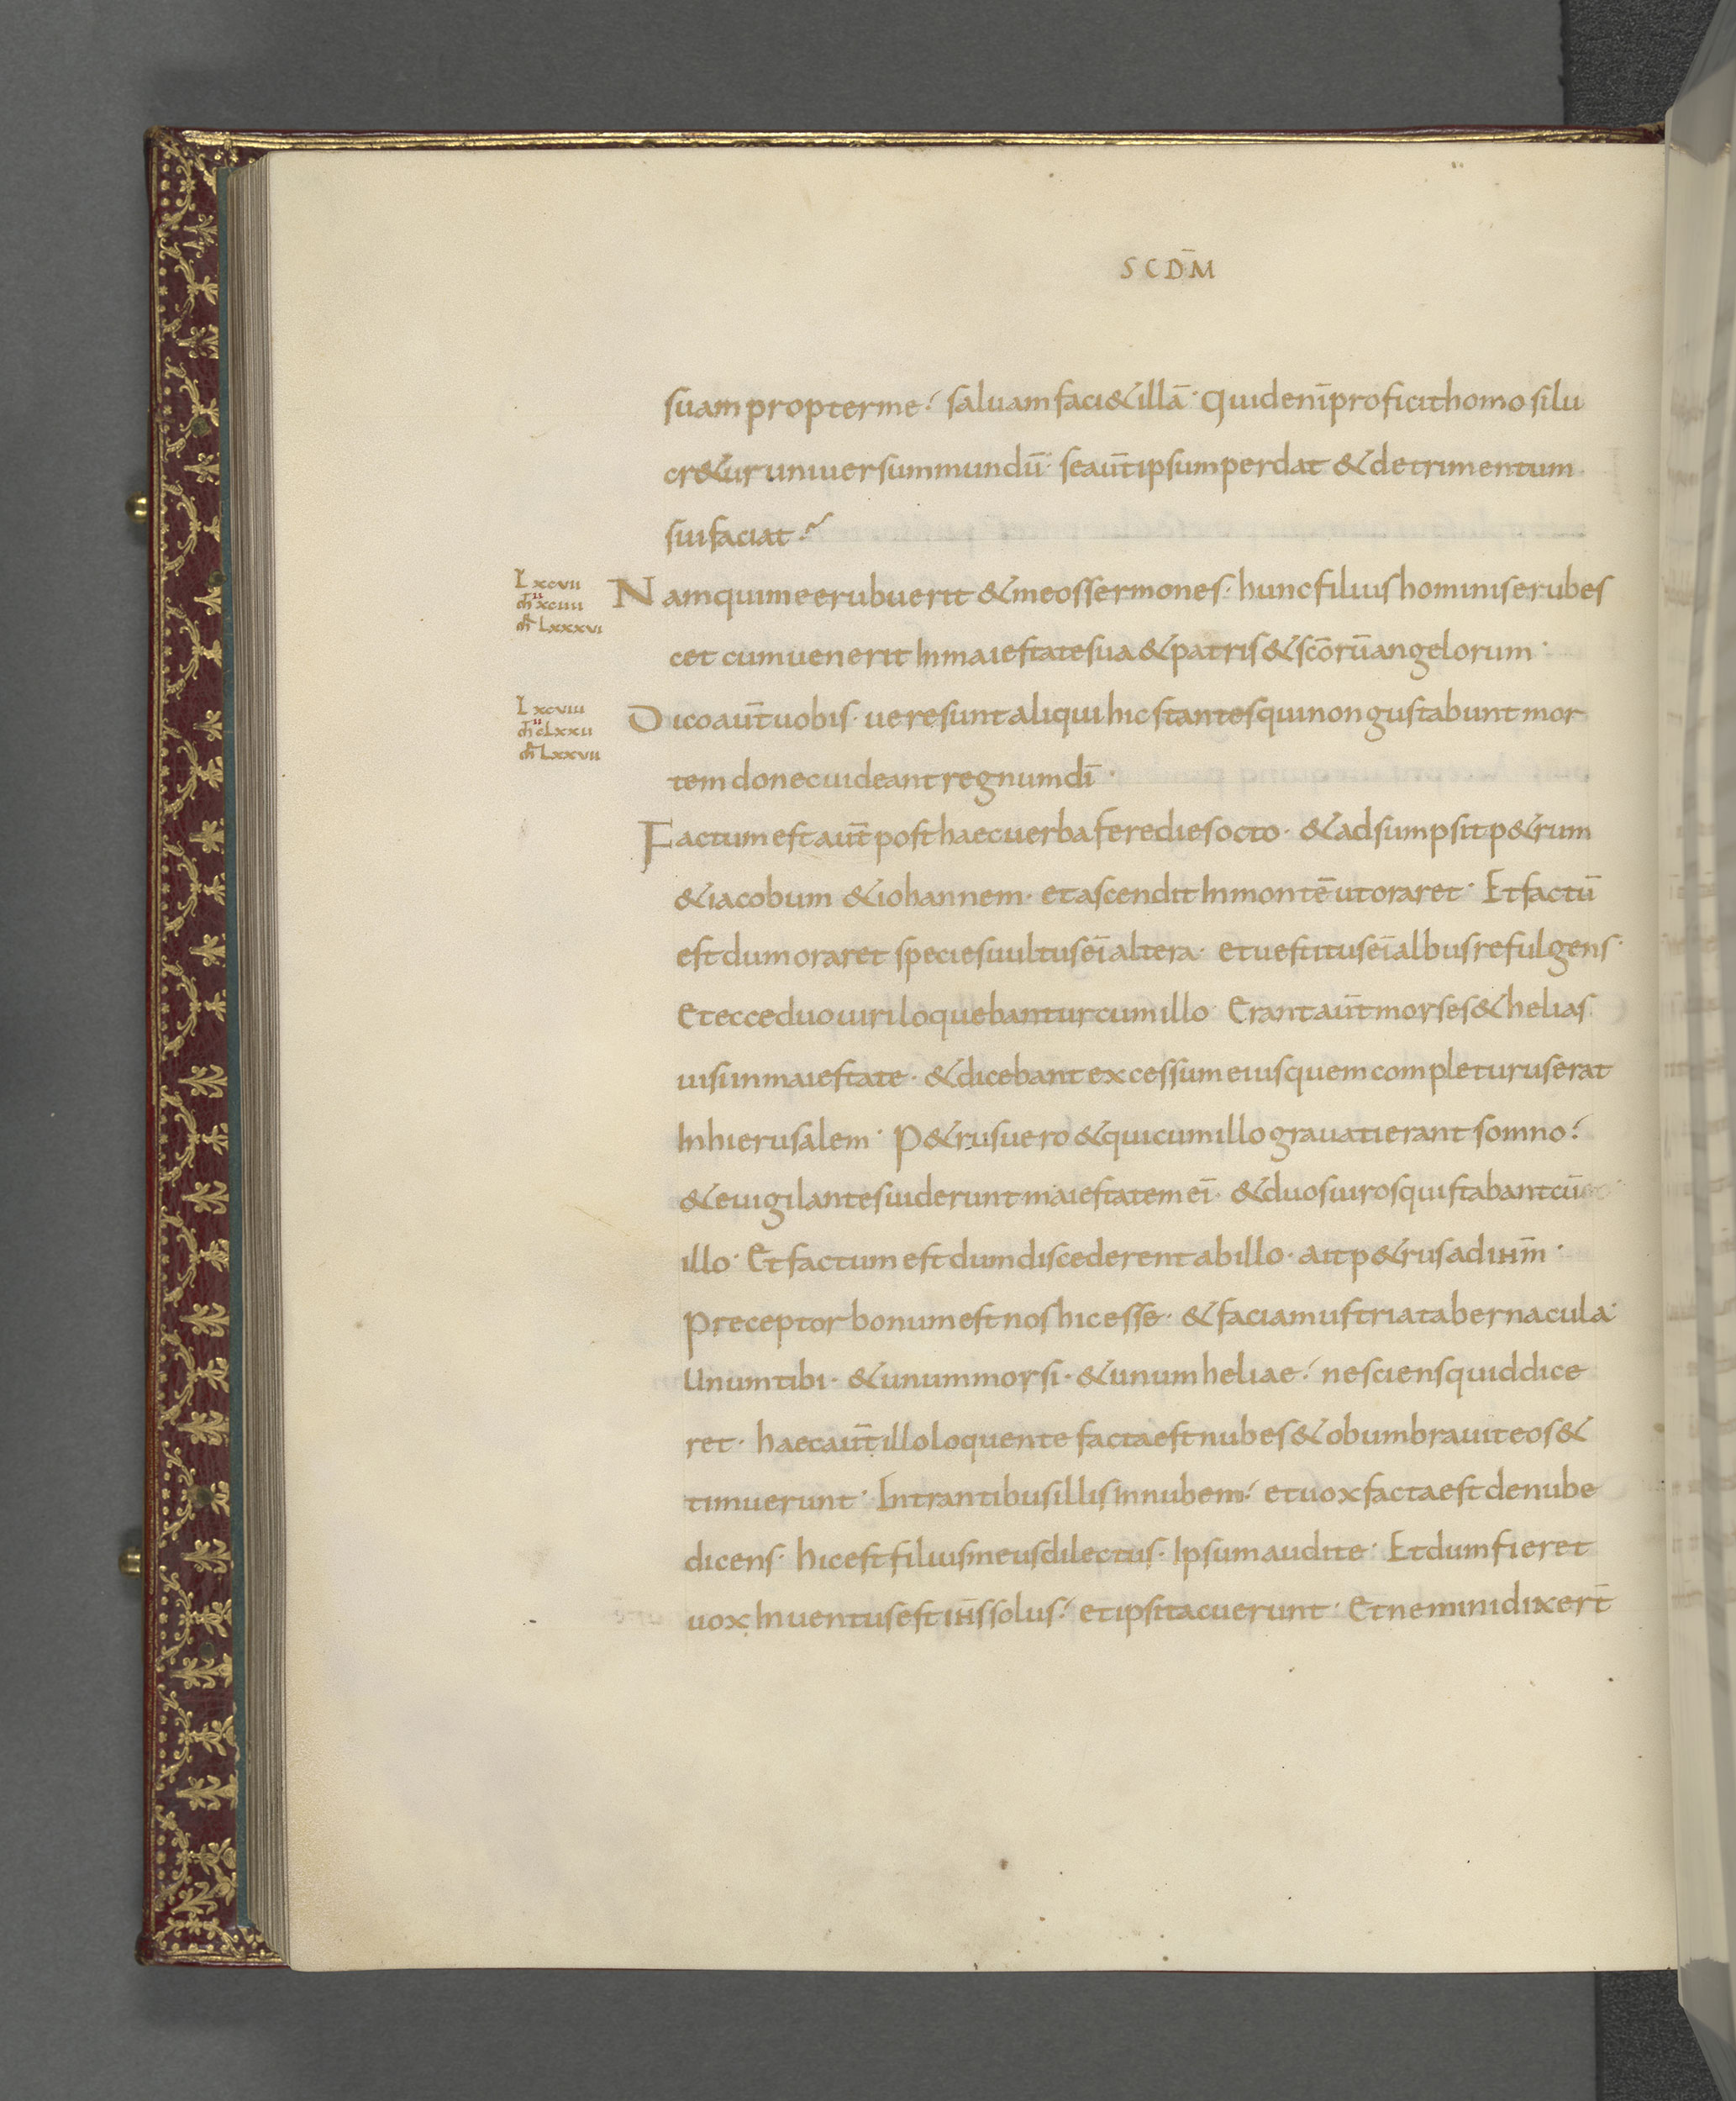 SCDM̄
suam propter me· saluam faci& illā· Quid enī proficit homo si lu
cr&ur uniuersum mundū· se aūt ipsum perdat & detrimentum
sui faciat·
L xcvii
m̄ xciiii
m̄r Lxxxvi
Nam qui me erubuerit & meos sermones· hunc filius hominis erubes
cet cum uenerit In maiestate sua & patris & scōrū angelorum·
L xcviii
m̄ cLxxii
m̄r Lxxvii
Dico aūt uobis· uere sunt aliqui hic stantes qui non gustabunt mor
tem donec uideant regnum dī·
Factum est aūt post haec uerba fere dies octo· & adsumpsit p&rum
& iacobum & iohannem· et ascendit In montē ut oraret· Et factū
est dum oraret species uultus eī altera· et uestitus eī albus refulgens·
Et ecce duo uiri loquebantur cum illo· Erant aūt moyses & helias
uisi in maiestate· & dicebant excessum eius quem completurus erat
In hierusalem· P&rus uero & qui cum illo grauati erant somno·
& euigilantes uiderunt maiestatem eī· & duos uiros qui stabant cū
illo· Et factum est dum discederent ab illo· ait p&rus ad ihm̄·
Preceptor bonum est nos hic esse· & faciamus tria tabernacula·
Unum tibi· & unum moysi· & unum heliae· nesciens quid dice
ret· haec aūt illo loquente facta est nubes & obumbrauit eos &
timuerunt· Intrantibus illis in nubem· et uox facta est de nube
dicens· hic est filius meus dilectus· Ipsum audite· Et dum fieret
uox Inuentus est ih̄s solus· et ipsi tacuerunt· Et nemini dixerт̄